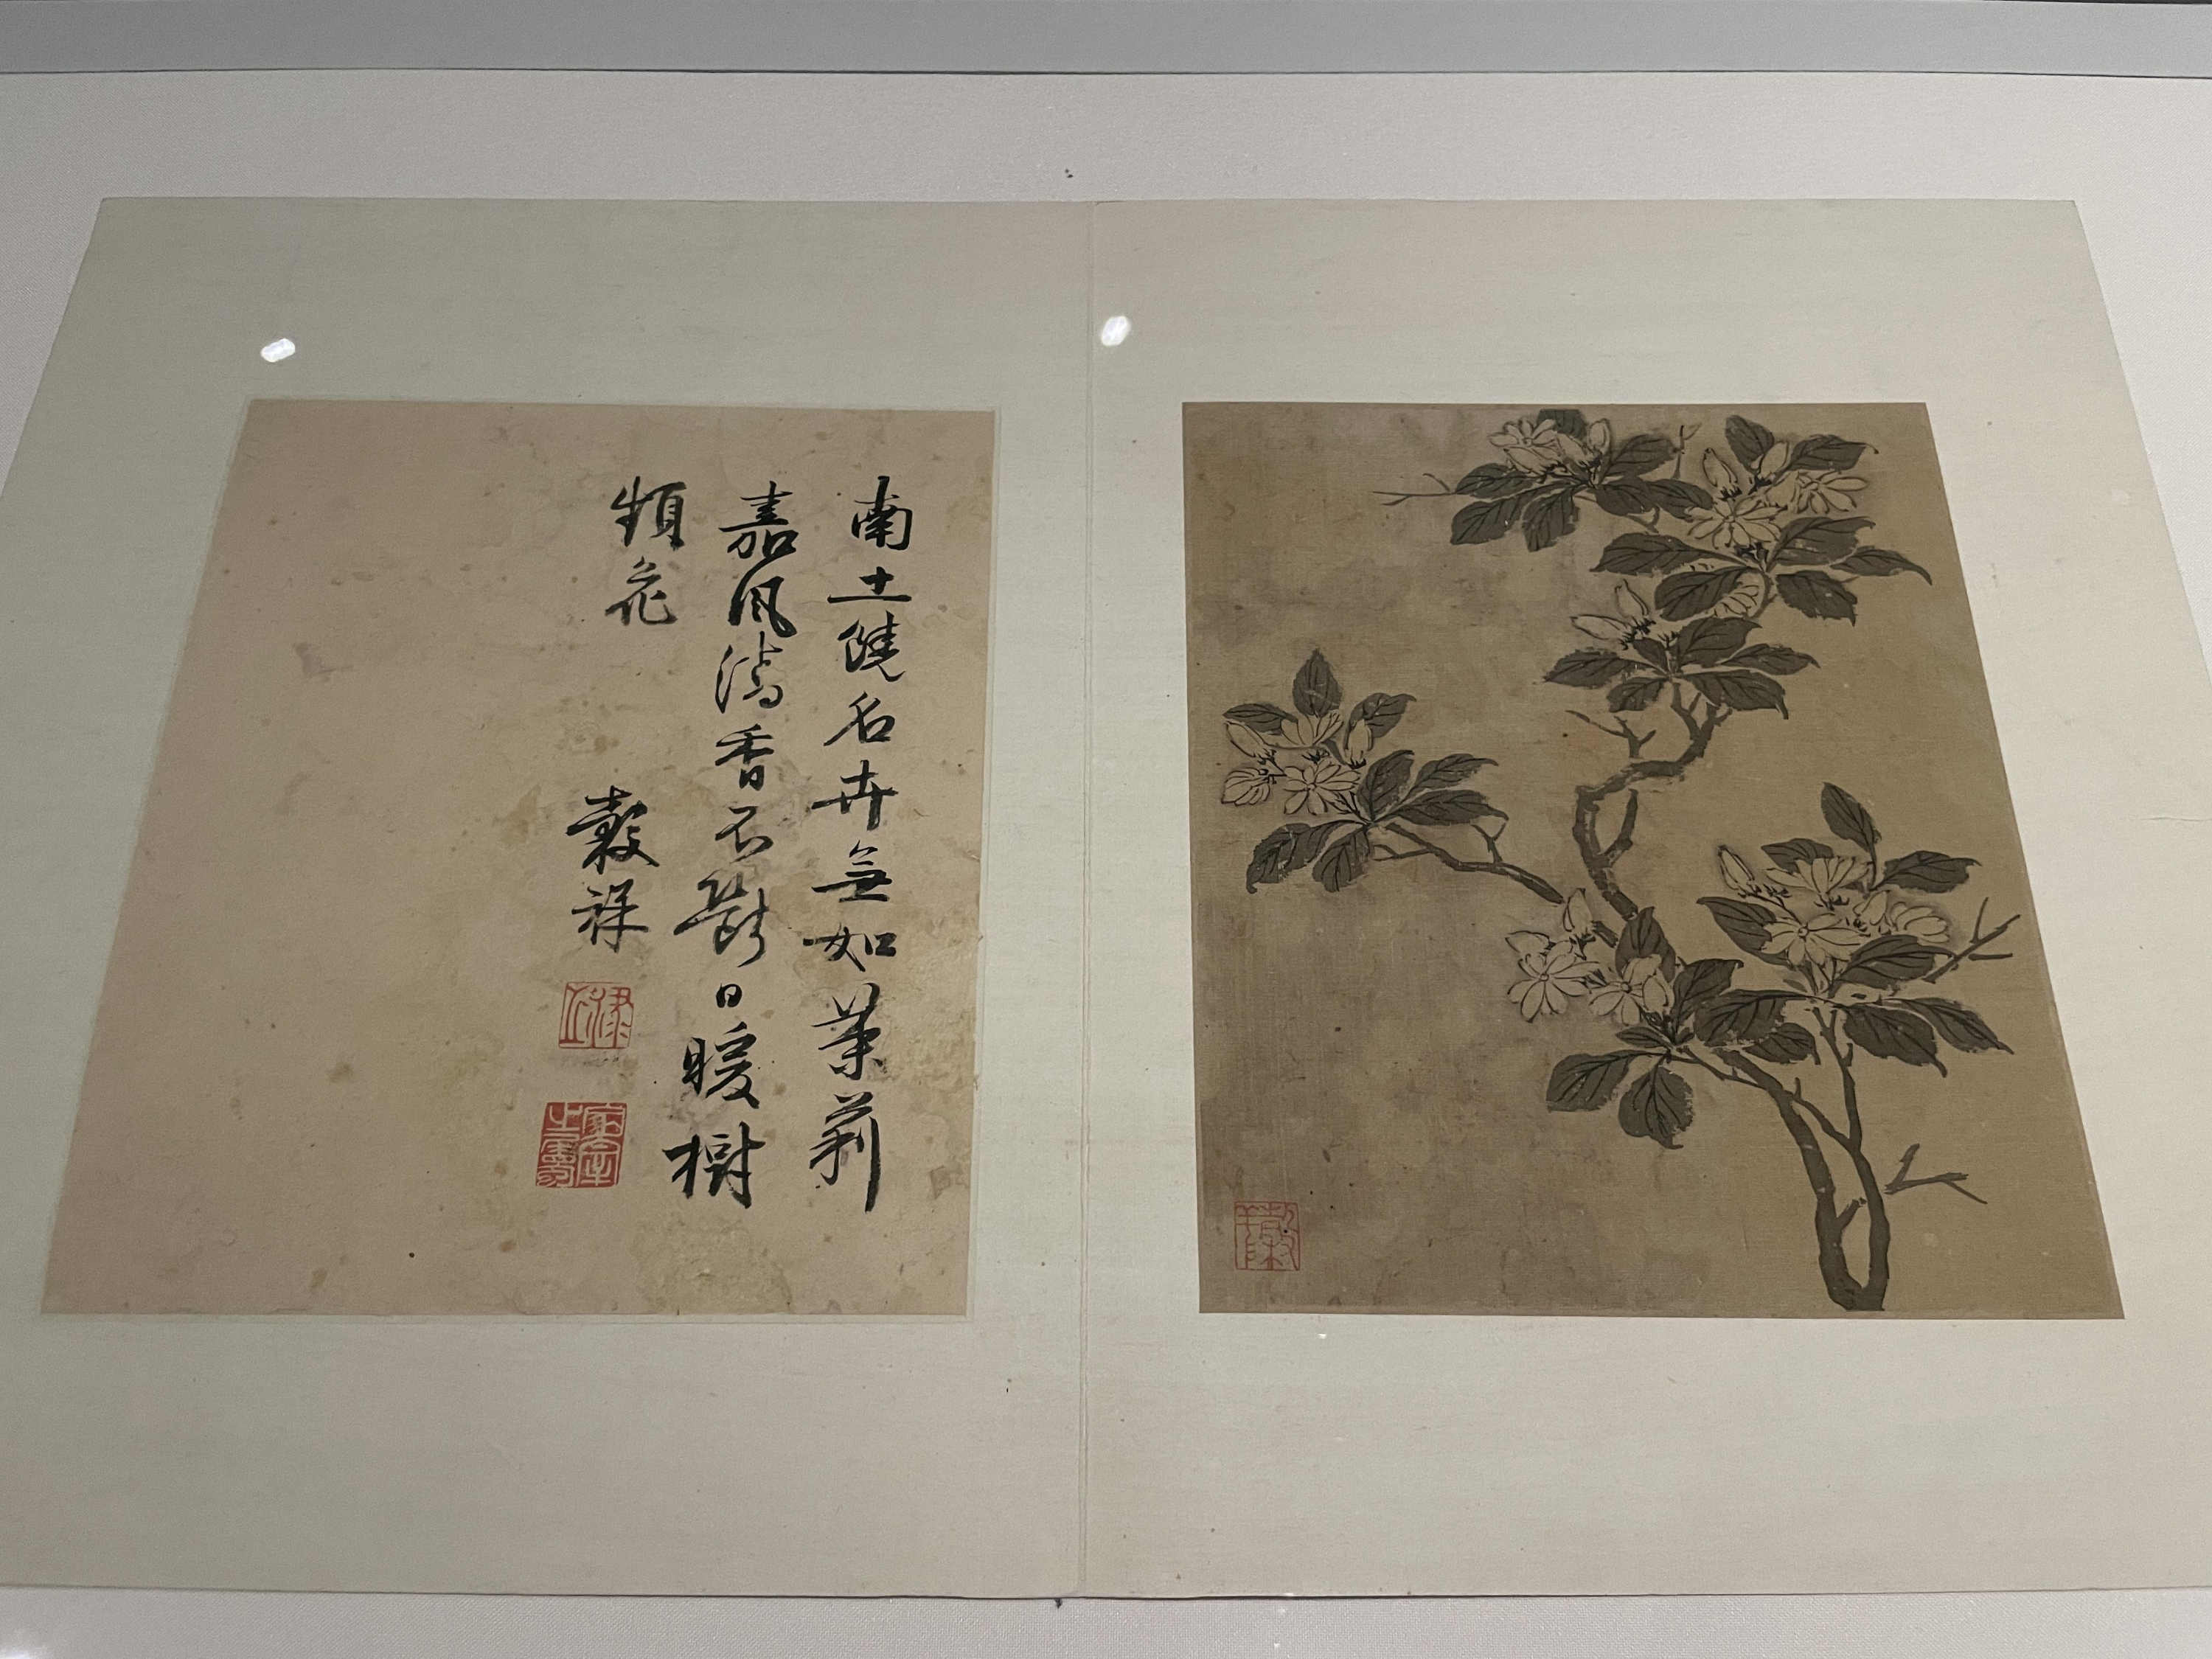 南土饒名卉無如茉莉
嘉風清香不斷日暖樹
頻花
穀祥